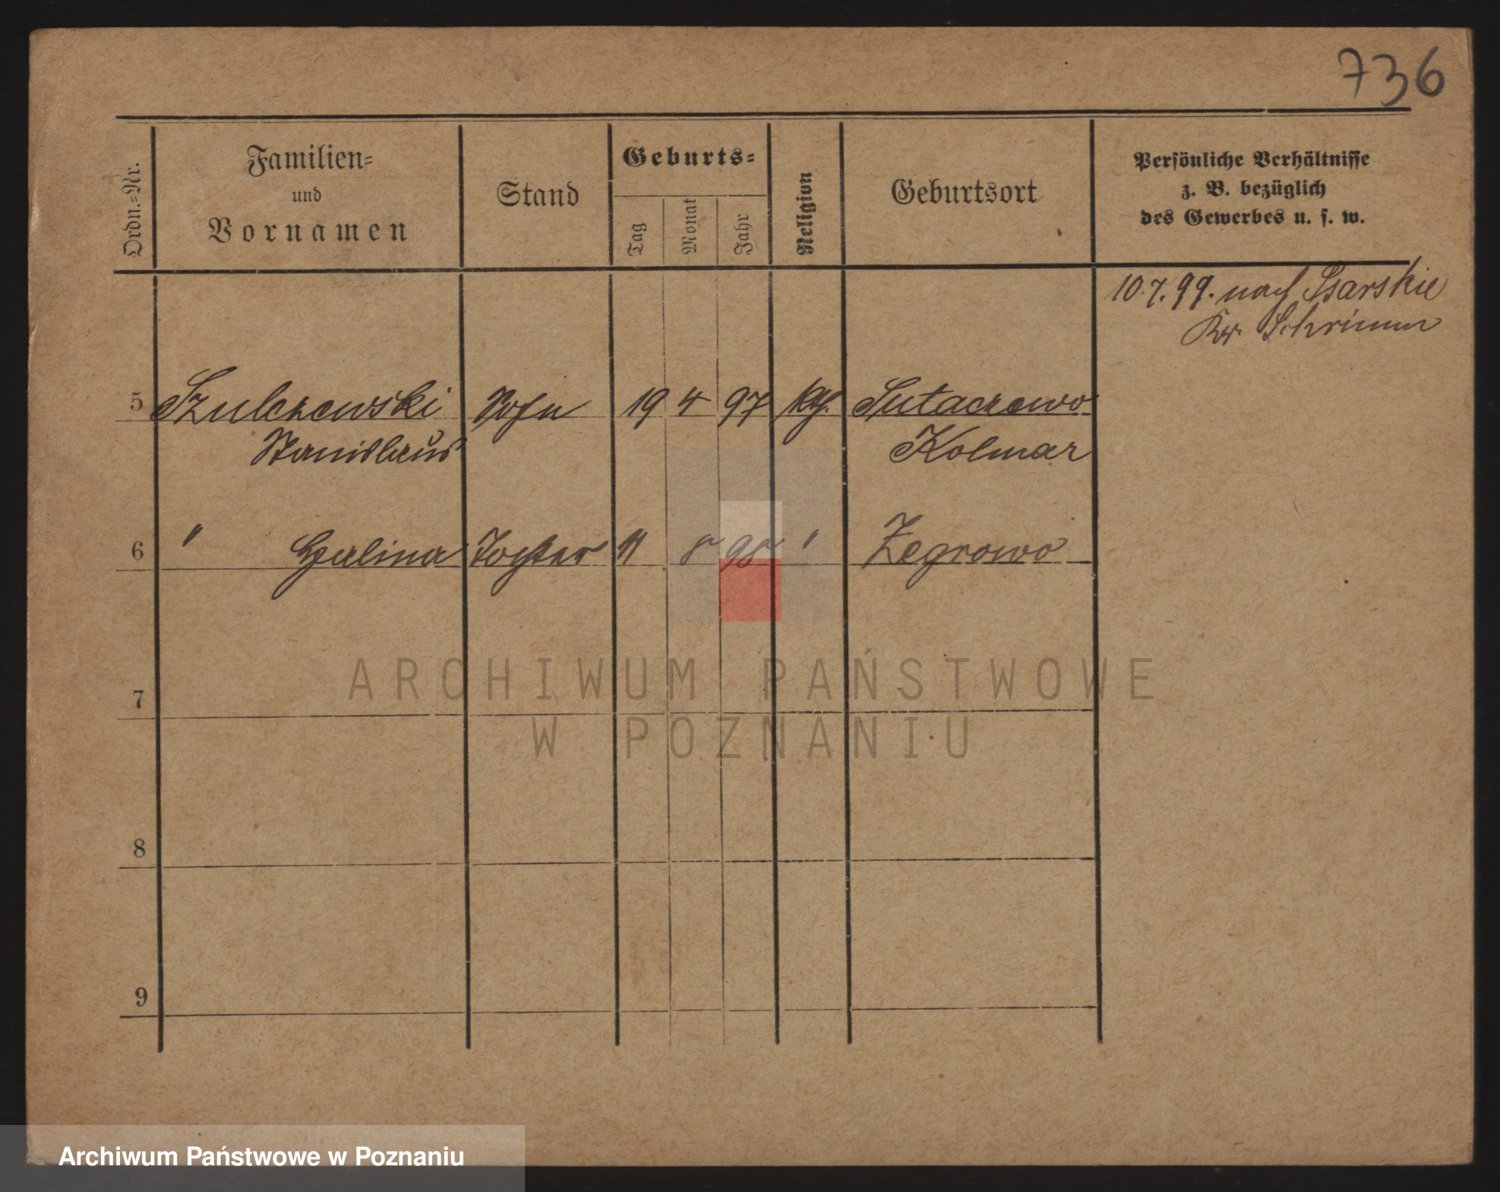 736
Ordn.-Nr.
Familien-
und
Vornamen
Stand
Geburts-
Tag
Monat
Jahr
Religion
Geburtsort
Persönliche Verhältnisse
z. B. bezüglich
des Gewerbes u. s. w.
10.7.99. nach Psarskie
Kr. Schrimm
5 Szulczewski Sohn 19 4 97 kth. Sutaczewo
Stanislaus Kolmar
6 " Halina Tochter 11 8 98 " Zegrowo
7
8
9
ARCHIWUM PAŃSTWOWE
W POZNANIU
Archiwum Państwowe w Poznaniu